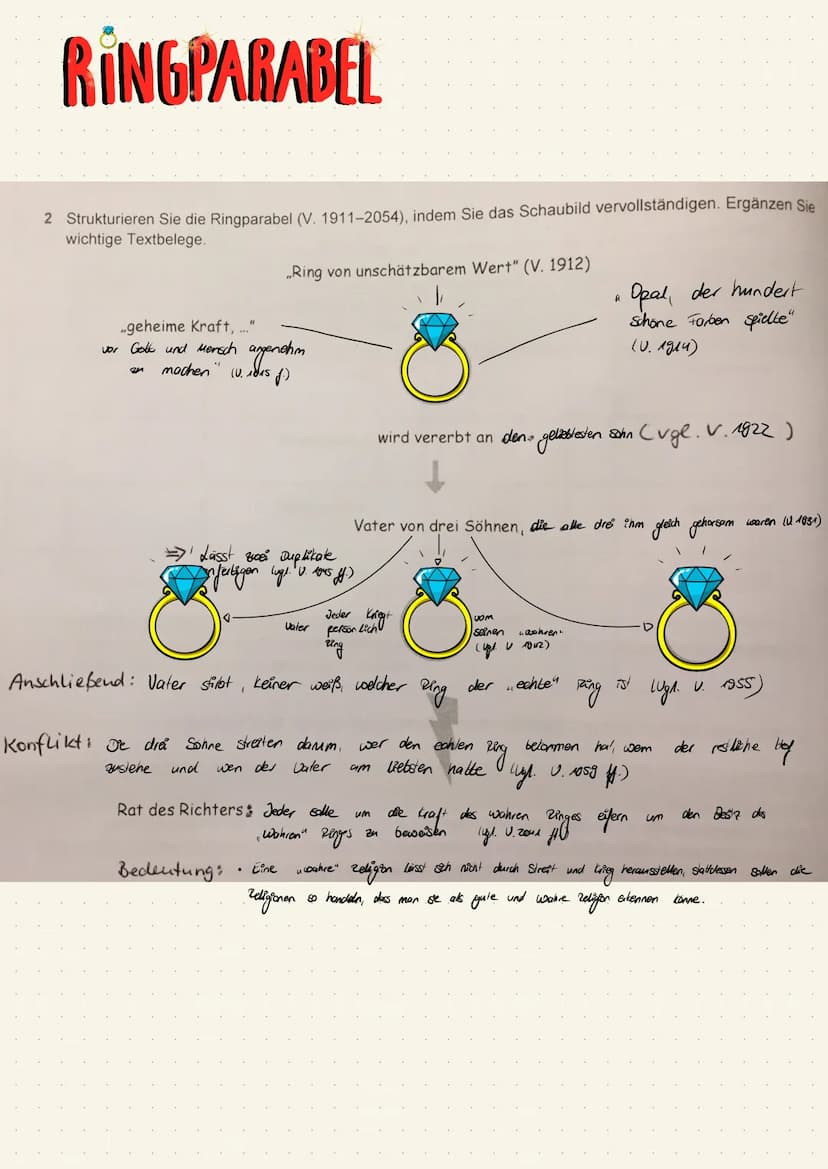 RINGPARABEL
2 Strukturieren Sie die Ringparabel (V. 1911–2054), indem Sie das Schaubild vervollständigen. Ergänzen Sie
wichtige Textbelege.
„Ring von unschätzbarem Wert" (V. 1912)
„Opal, der hundert
schöne Farben spielte"
(V. 1914)
„geheime Kraft, ..."
vor Gott und Mensch angenehm
zu machen" (V. f.)
wird vererbt an den geliebtesten Sohn (vgl. V. 1922)
Vater von drei Söhnen, die alle drei ihm gleich gehorsam waren (V.
⇒ Lässt zwei Duplikate
anfertigen (vgl. V. ff.)
Vater
Jeder kriegt
persönlich
Ring
vom
seinen „wahren"
(vgl. V
Anschließend: Vater stirbt, keiner weiß, welcher Ring der „echte" Ring ist (vgl. V. 1955)
Konflikt: Die drei Söhne streiten darum, wer den echten Ring bekommen hat, wem der restliche Hof
zustehe und wen der Vater am liebsten hatte (vgl. V. ff.)
Rat des Richters: Jeder solle um die Kraft des wahren Ringes eifern um den Besitz des
„wahren" Ringes zu beweisen (vgl. V. ff)
Bedeutung: • Eine „wahre" Religion lässt sich nicht durch Streit und Krieg herausstellen, stattdessen sollen die
Religionen so handeln, dass man sie als gute und wahre Religion erkennen könne.